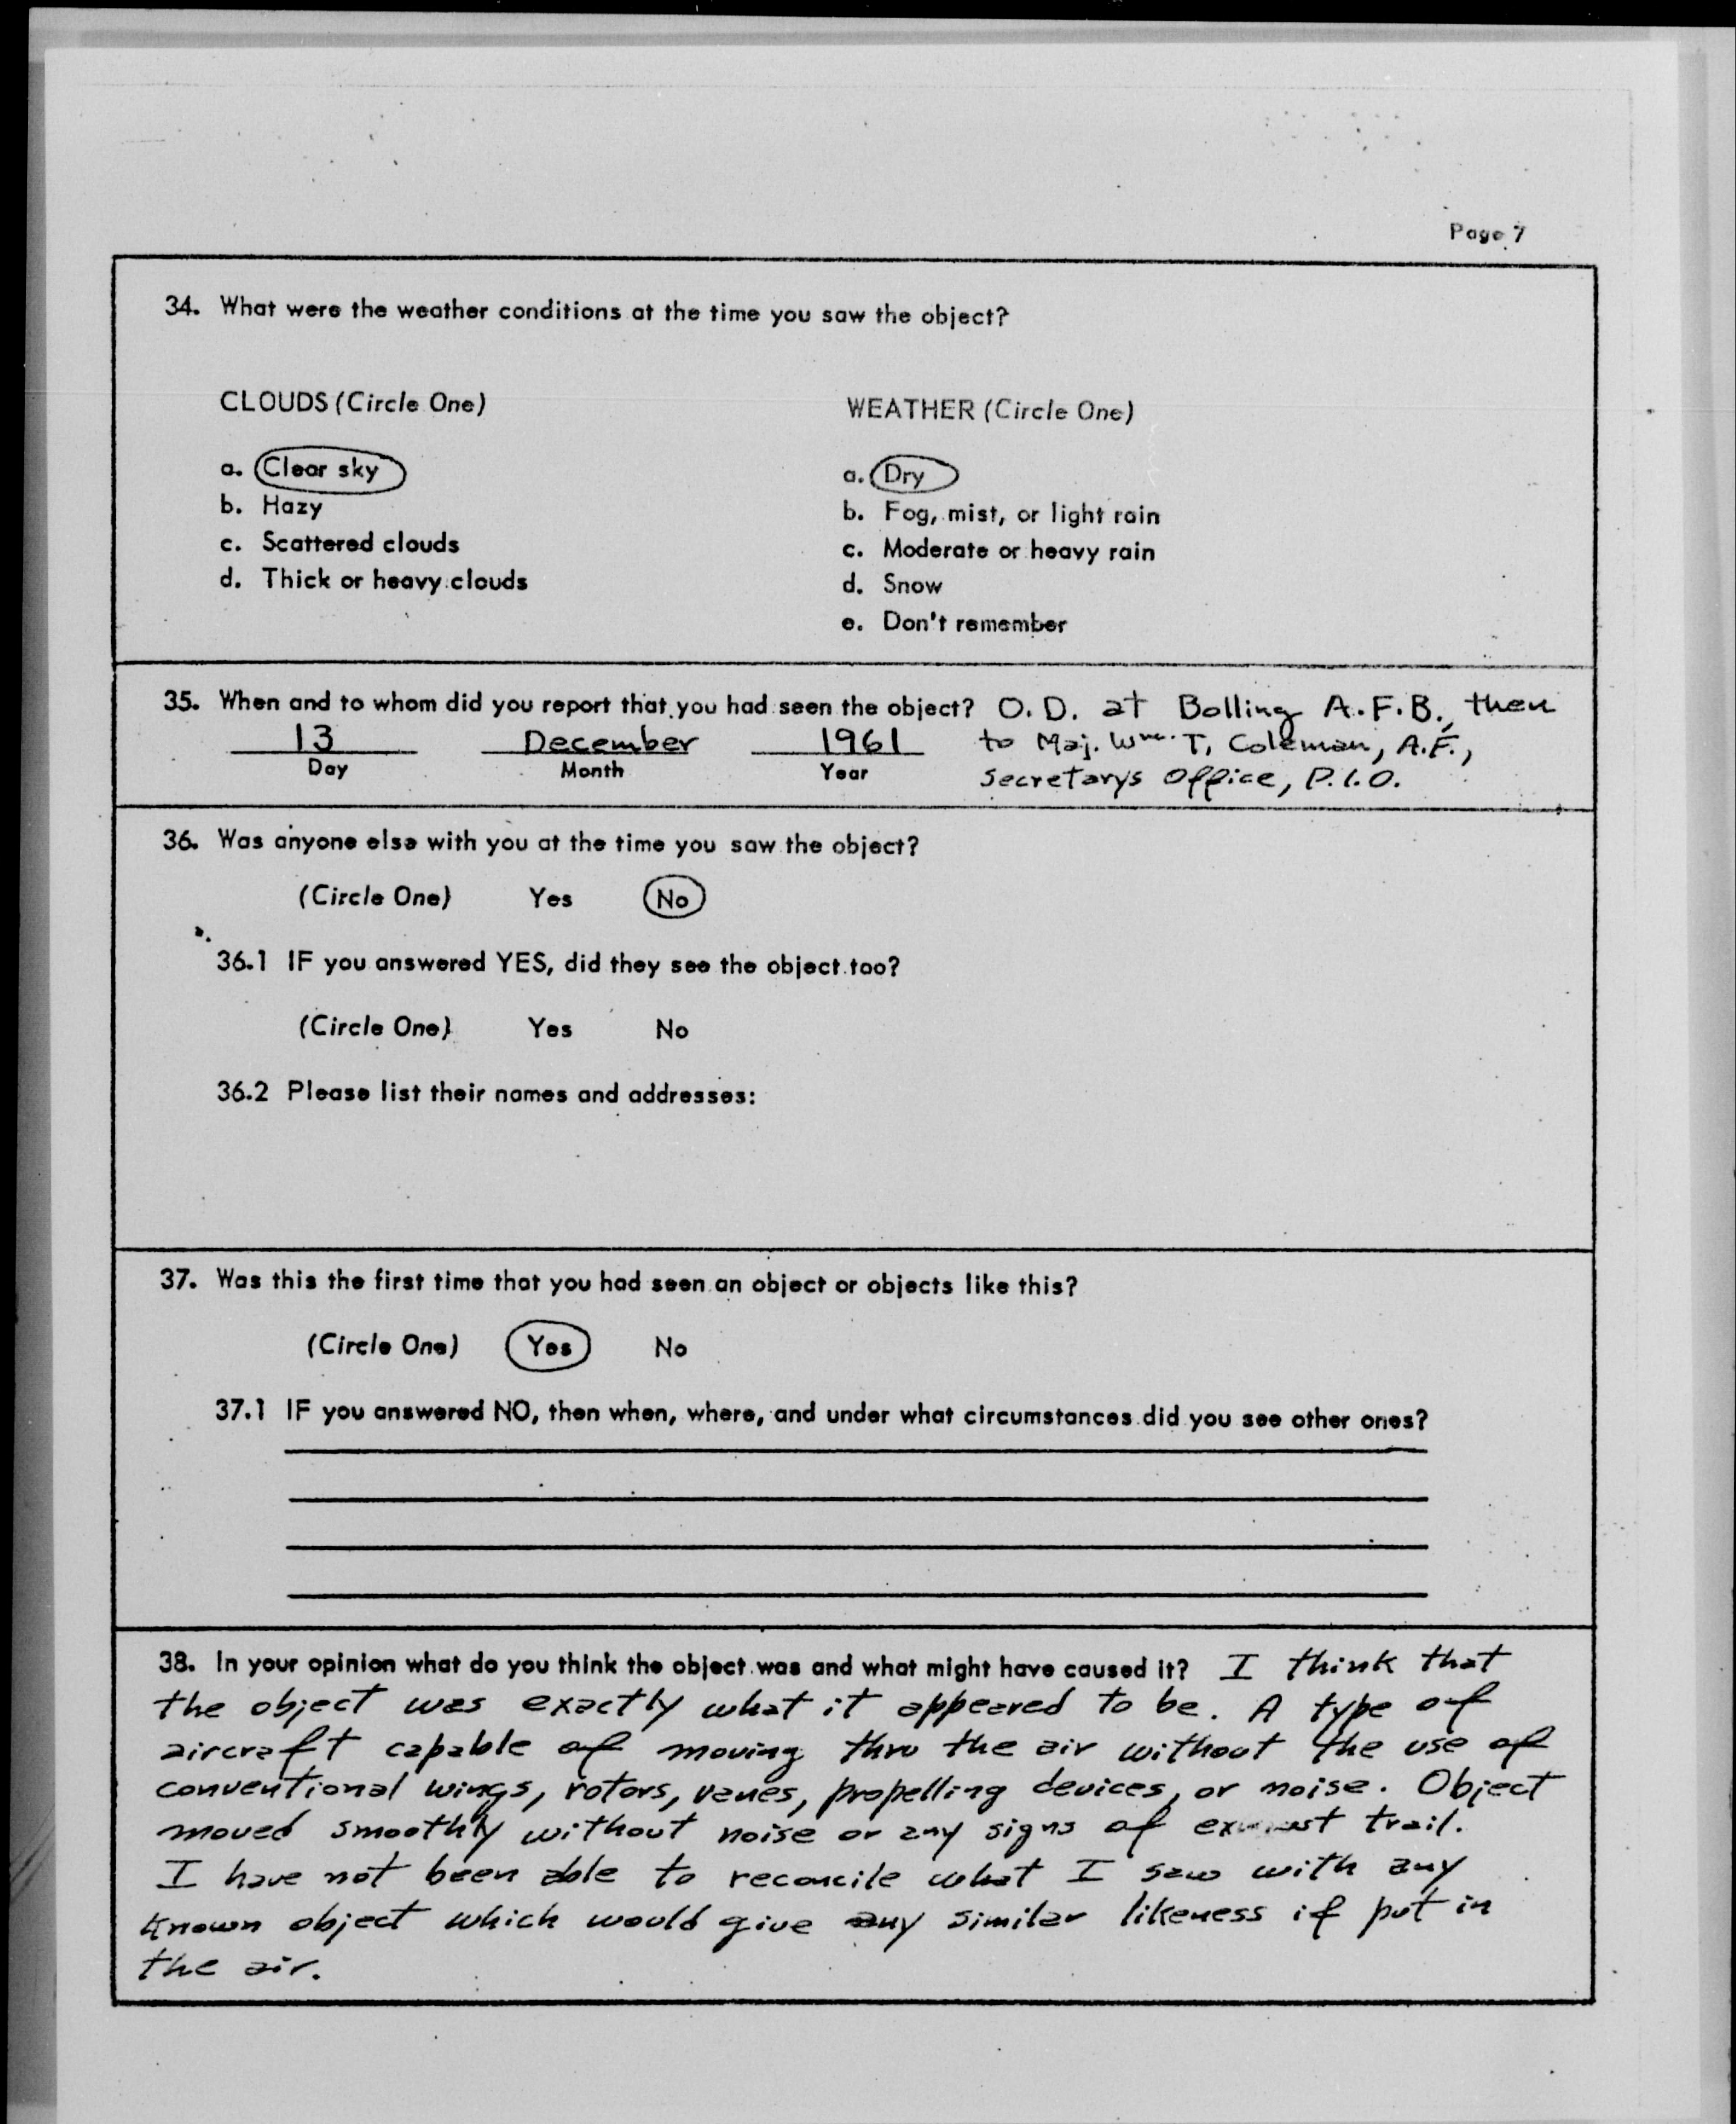 Page 7
34. What were the weather conditions at the time you saw the object?
CLOUDS (Circle One)
a. Clear sky
b. Hazy
c. Scattered clouds
d. Thick or heavy clouds
WEATHER (Circle One)
a. Dry
b. Fog, mist, or light rain
c. Moderate or heavy rain
d. Snow
e. Don't remember
35. When and to whom did you report that you had seen the object? O.D. at Bolling A.F.B., then
13 December 1961 to Maj. Wm. T. Coleman, A.F.,
Day Month Year Secretarys Office, P.I.O.
36. Was anyone else with you at the time you saw the object?
(Circle One) Yes No
36.1 IF you answered YES, did they see the object too?
(Circle One) Yes No
36.2 Please list their names and addresses:
37. Was this the first time that you had seen an object or objects like this?
(Circle One) Yes No
37.1 IF you answered NO, then when, where, and under what circumstances did you see other ones?
38. In your opinion what do you think the object was and what might have caused it? I think that
the object was exactly what it appeared to be. A type of
aircraft capable of moving thru the air without the use of
conventional wings, rotors, vanes, propelling devices, or noise. Object
moved smoothly without noise or any signs of trail.
I have not been able to reconcile what I saw with any
known object which would give any similar likeness if put in
the air.